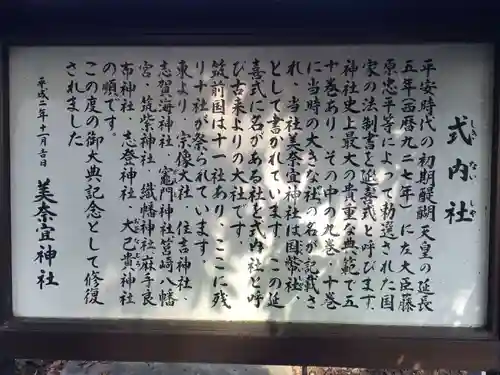 式内社
しき ない しゃ
平安時代の初期醍醐天皇の延長
五年(西暦九二七年)に左大臣藤
原忠平等によって勅選された国
家の法制書を延喜式と呼びます。
神社史上最大の貴重な典範で五
十巻あり、その中の九巻・十巻
に当時の大きな社の名が記載さ
れ、当社美奈宜神社は国幣社、
として書かれています。この延
喜式に名がある社を式内社と呼
び古来よりの大社です。
筑前国は十一社あり、ここに残
り十社が祭られています
東より、宗像大社、住吉神社、
志賀海神社、竈門神社筥崎八幡
宮・筑紫神社、織幡神社麻手良
布神社、志登神社、大己貴神社
の順です。
この度の御大典記念として修復
されました
平成二年十一月吉日
美奈宜神社